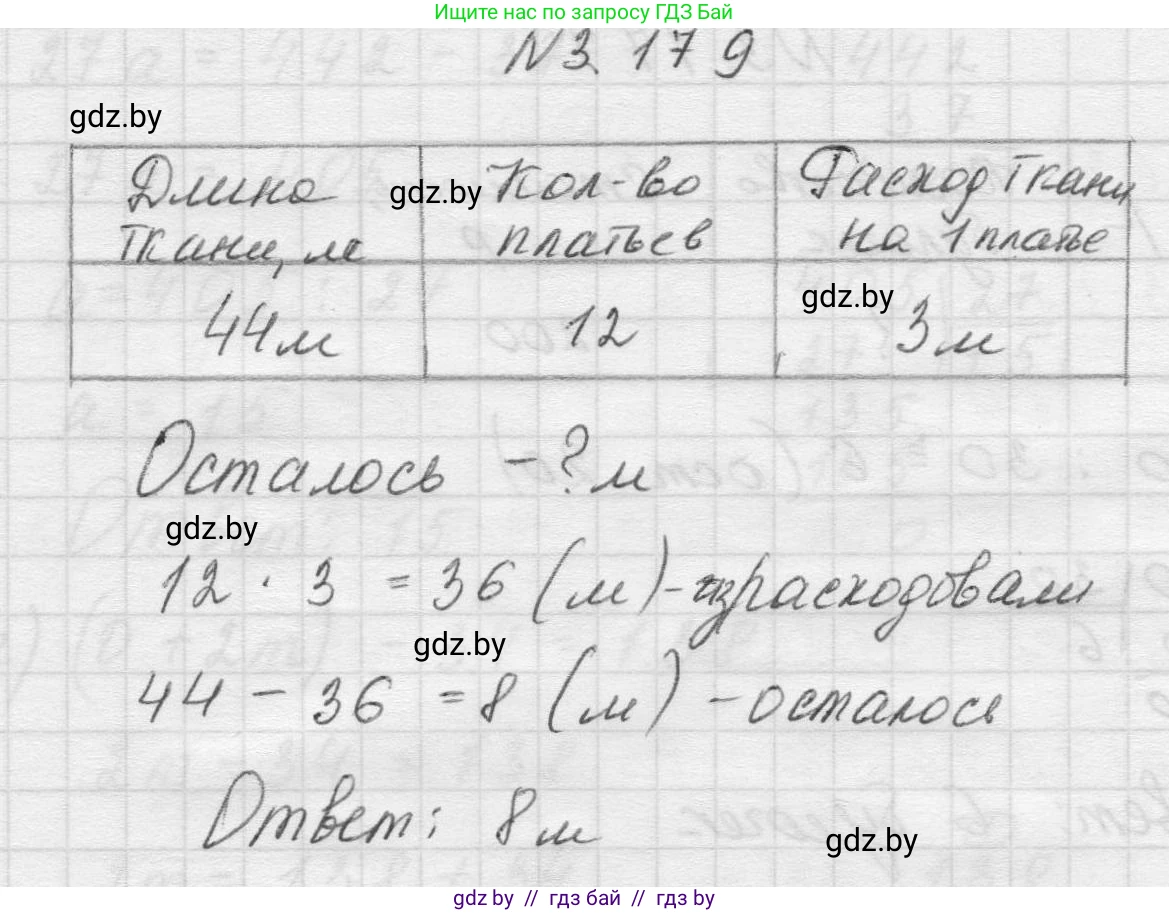 Ищите нас по запросу ГДЗ Бай
N3.179
gdz.by
Длина ткани, м
gdz.by
Кол-во платьев
Расход ткани на 1 платье
44м
12
gdz.by
3м
Осталось - ? м
gdz.by
12 · 3 = 36 (м) - израсходовали
gdz.by
44 - 36 = 8 (м) - осталось
Ответ: 8м
gdz.by
gdz.by // гдз бай // гдз by